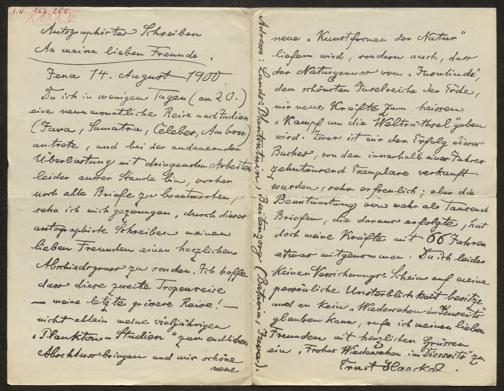 I.N. 167.255
Autographirtes Schreiben
An meine lieben Freunde.
Jena 14. August 1900
Da ich in wenigen Tagen (am 20.)
eine neunmonatliche Reise nach Indien
(Java, Sumatra, Celebes, Amboina)
antrete, und bei der andauernden
Überlastung mit dringenden Arbeiten
leider ausser Stande bin, vorher
noch alle Briefe zu beantworten,
sehe ich mich gezwungen, durch dieses
autographirte Schreiben meinen
lieben Freunden einen herzlichen
Abschiedsgruss zu senden. Ich hoffe
dass diese zweite Tropenreise
— meine letzte grössere Reise! —
nicht allein meine vieljährigen
„Plankton-Studien" zum endlichen
Abschluss bringen und mir schöne
neue
Adresse: Lands-Plantentuin, Buitenzorg (Batavia, Java).
neue „Kunstformen der Natur"
liefern wird, sondern auch, dass
der Naturgenuss von „Insulinde",
dem schönsten Inselreiche der Erde,
mir neue Kräfte zum heissen
„Kampf um die Welträthsel" geben
wird. Zwar ist mir der Erfolg dieses
Buches, von dem innerhalb eines Jahres
zehntausend Exemplare verkauft
wurden, sehr erfreulich; aber die
Beantwortung von mehr als tausend
Briefen, die daraus erfolgte, hat
doch meine Kräfte mit 66 Jahren
etwas mitgenommen. Da ich leider
keinen Versicherungs-Schein auf meine
persönliche Unsterblichkeit besitze
und an kein „Wiedersehen im Jenseits"
glauben kann, rufe ich meinen lieben
Freunden mit herzlichen Grüssen
ein „Frohes Wiedersehen im Diesseits" zu
Ernst Haeckel.